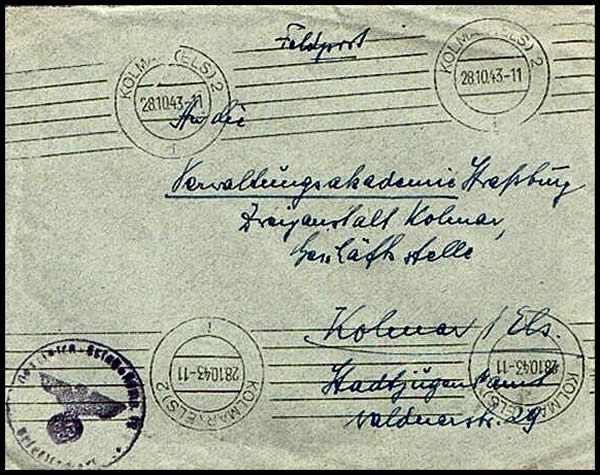 Feldpost
KOLMAR (ELS) 2
28.10.43-11
1
KOLMAR (ELS) 2
28.10.43-11
1
An die
Verwaltungsakademie Straßburg
Zweiganstalt Kolmar,
Geschäftsstelle
Kolmar / Els.
Stadtjugendamt
Waldnerstr. 29
KOLMAR (ELS) 2
28.10.43-11
1
KOLMAR (ELS) 2
28.10.43-11